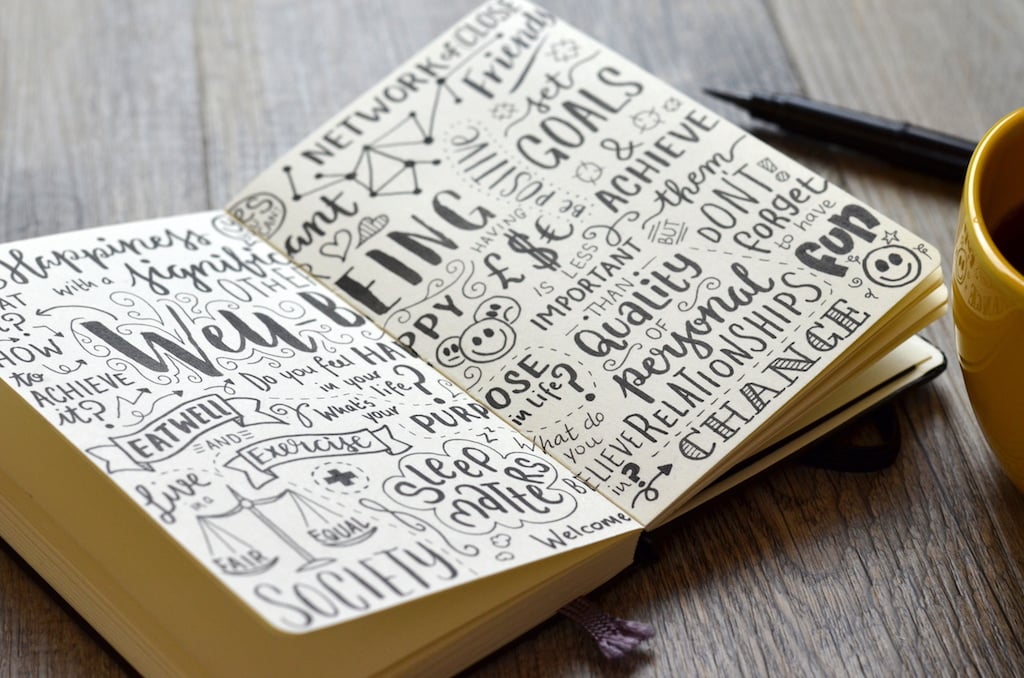 Happiness
with a significant
OTHER
HOW
to
ACHIEVE
it?
WELL-BEING
Do you feel HAPPY
in your life?
EAT WELL
AND
Exercise
What's
your
PURPOSE
in life?
Live
in a
FAIR
EQUAL
SOCIETY
Sleep
matters
z
Welcome
NETWORK of CLOSE
Friends
set
GOALS
&
ACHIEVE
them
BUT
DON'T
forget
to have
fun!
HAVING
POSITIVE
£ $ €
IS LESS
IMPORTANT
THAN
Quality
OF
personal
RELATIONSHIPS
What do
you
BELIEVE
in?
CHANGE